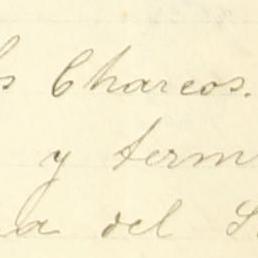 os Charcos.
y term
na del S